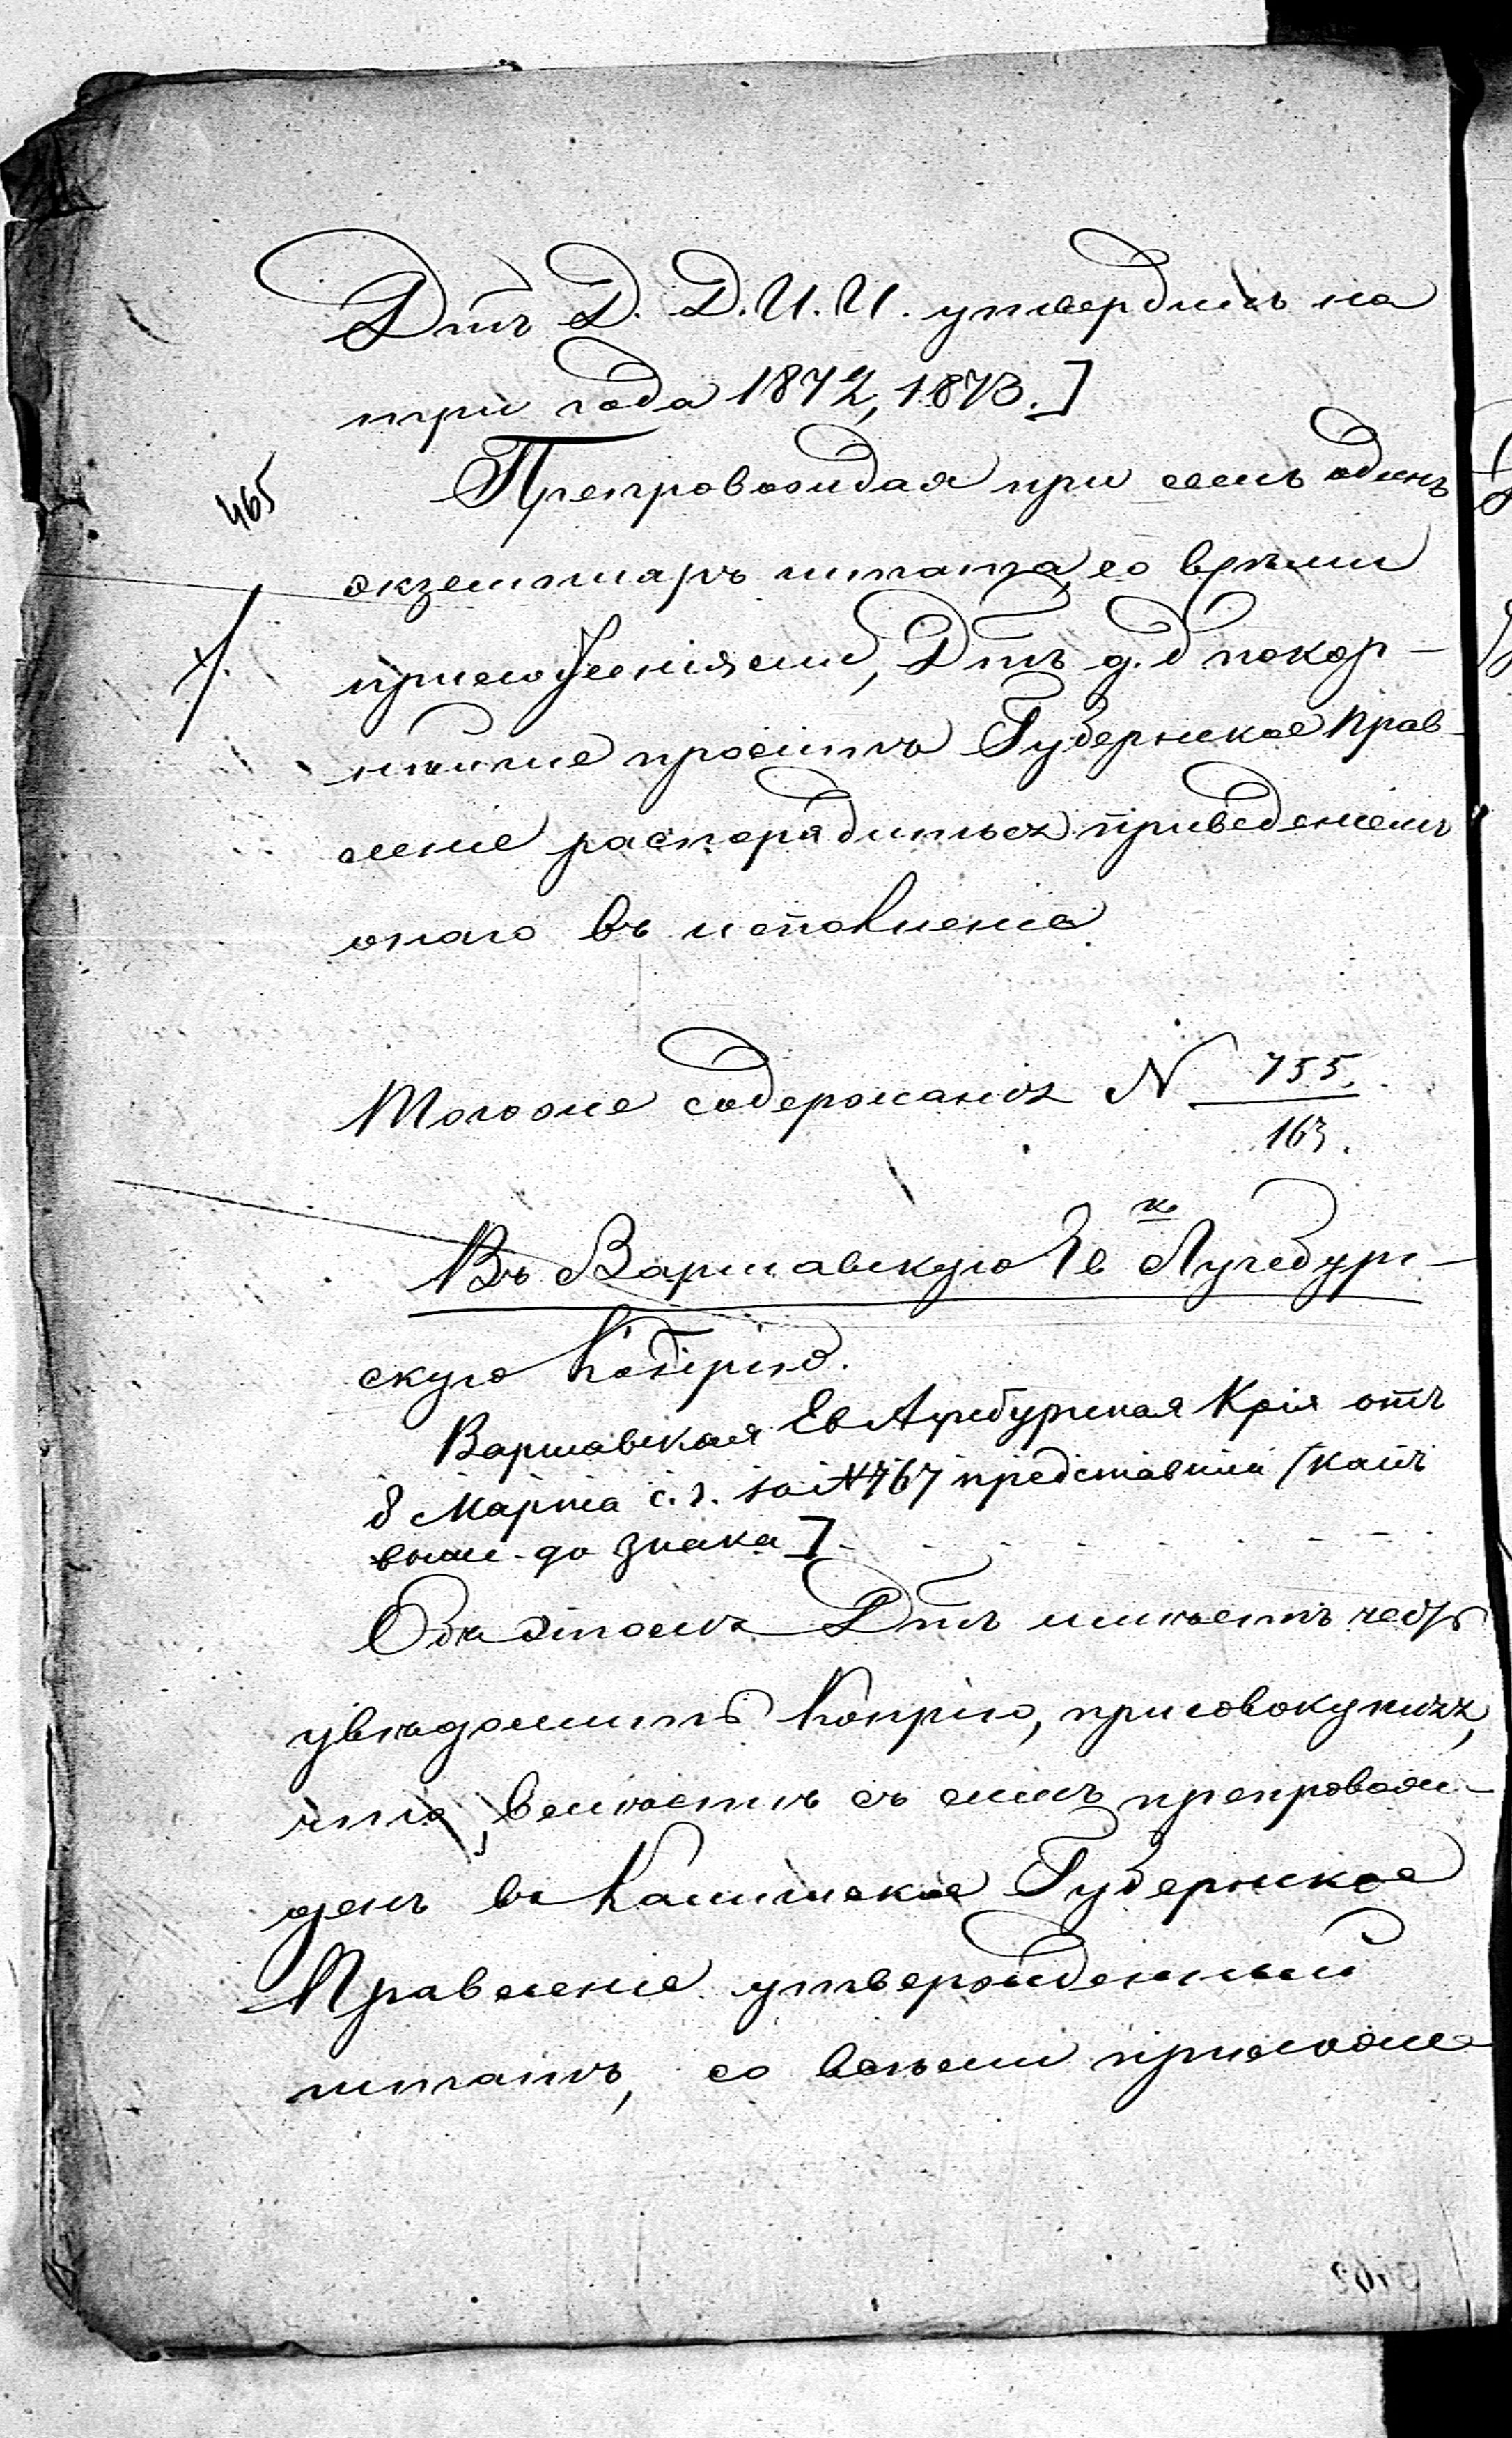 Дтъ Д. Д. И. И. утвердилъ на
три года 1872, 1873.]
465
Препровождая при семъ одинъ
экземпляръ штата, со всѣми
приложеніями, Дтъ д. д покор-
нѣйше проситъ Губернское Прав-
леніе распорядиться приведеніемъ
онаго въ исполненіе
Тогоже содержанія N 755.
163.
Въ Варшавскую Ев к. Аугсбург-
скую Консрію.
Варшавская Ев Аугсбургская Крія отъ
8 Марта с. г. за N 767 представила [какъ
выше до знака ]
Объ этомъ Дтъ имѣетъ честь
увѣдомить Консрію, присовокупляя,
что вмѣстѣ съ симъ препровож-
денъ въ Калишское Губернское
Правленіе утвержденный
штатъ, со всѣми приложе